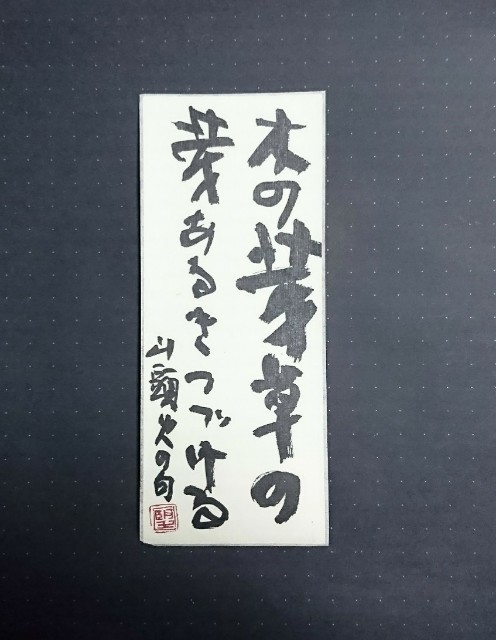 木の芽草の
芽あるきつづける
山頭火の句